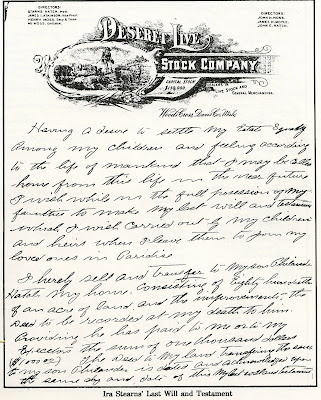 DIRECTORS:
STEARNS HATCH, Pres.
JAMES ATKINSON, Vice Pres.
HENRY MOSS, Secy & Treas.
DIRECTORS:
JOHN H. MOSS.
JAMES H. MOYLE.
JOHN E. HATCH.
DESERET LIVE
STOCK COMPANY
CAPITAL STOCK
$150,000
DEALERS IN
LIVE STOCK AND
GENERAL MERCHANDISE.
Woods Cross, Davis Co., Utah,
Having a desire to settle My Estate Equally
Among my children and feeling according
to the life of mankind that I may be called
home from this life in the near future
I wish while in the full possession of My
faculties to make My last will and testament
which I wish carried out by my children
and heirs when I leave them to join my
loved ones in Paradise
I hereby sell and transfer to My son Philander
Hatch My home, Consisting of Eighty hundredths
of an acre of land and the improvements, the
Deed to be recorded at my death to him.
Providing he has paid to me or to my
Executors the sum of one thousand dollars
The Deed to My land transfering the same
to my son Philander is dated and acknowledged upon
the same day and date of this My last will and testament
Ira Stearns' Last Will and Testament